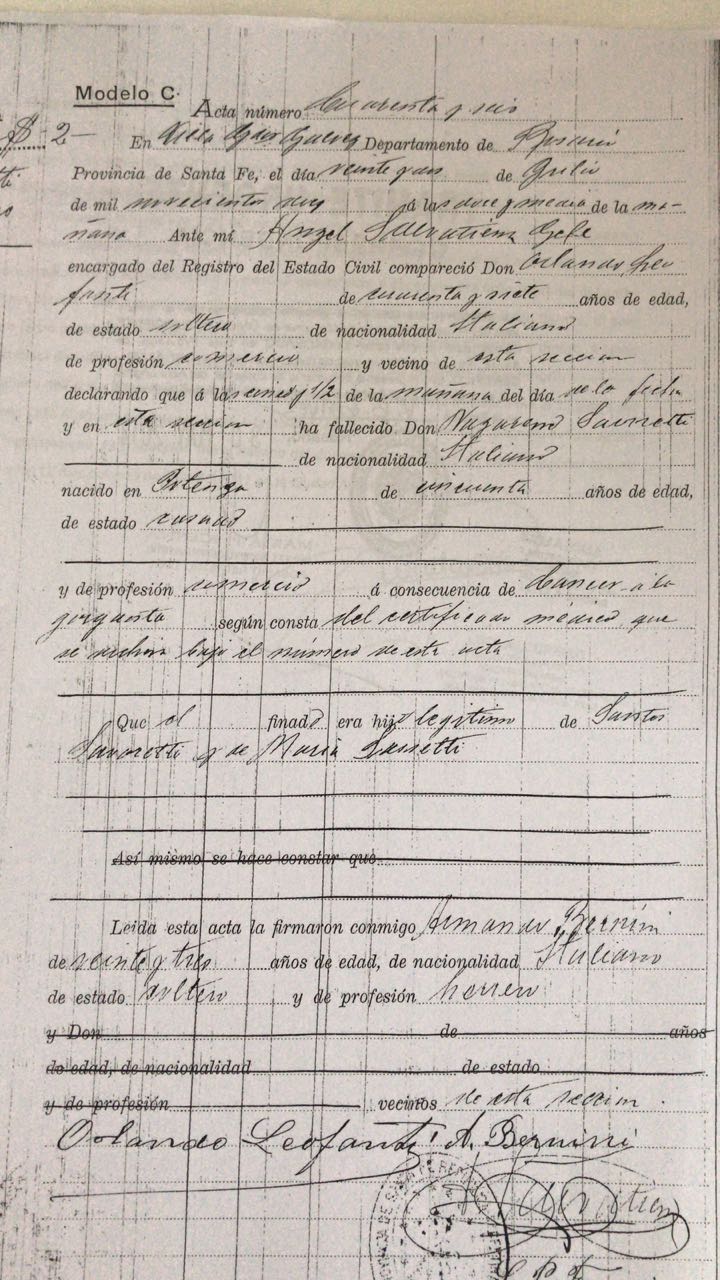 Modelo C.
Acta número Cuarenta y seis
$ 2—
En Villa Gdor Galvez Departamento de Rosario
Provincia de Santa Fe, el día veinte y de Julio
de mil novecientos á las doce y media de la ma-
ñana Ante mí Angel Salvatierra Gefe
encargado del Registro del Estado Civil compareció Don Orlando Leo
fanti de cuarenta y siete años de edad,
de estado soltero de nacionalidad Italiano
de profesión comercio y vecino de esta seccion
declarando que á las cinco y 1/2 de la mañana del día de la fecha
y en esta seccion ha fallecido Don Nazareno Savoretti
de nacionalidad Italiano
nacido en Potenza de cincuenta años de edad,
de estado casado
y de profesión comercio á consecuencia de Cancer a la
garganta según consta del certificado médico que
se archiva bajo el número de esta acta
Que el finado era hijo legitimo de Santos
Savoretti y de Maria
Así mismo se hace constar que
Leida esta acta la firmaron conmigo Armando Bernini
de veinte y tres años de edad, de nacionalidad Italiano
de estado soltero y de profesión herrero
y Don de años
de edad, de nacionalidad de estado
y de profesión vecinos de esta seccion.
Orlando Leofanti A. Bernini
Salvatierra